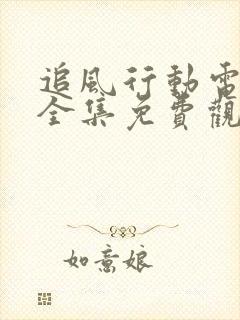 追风行動電
全集免費觀
如意娘